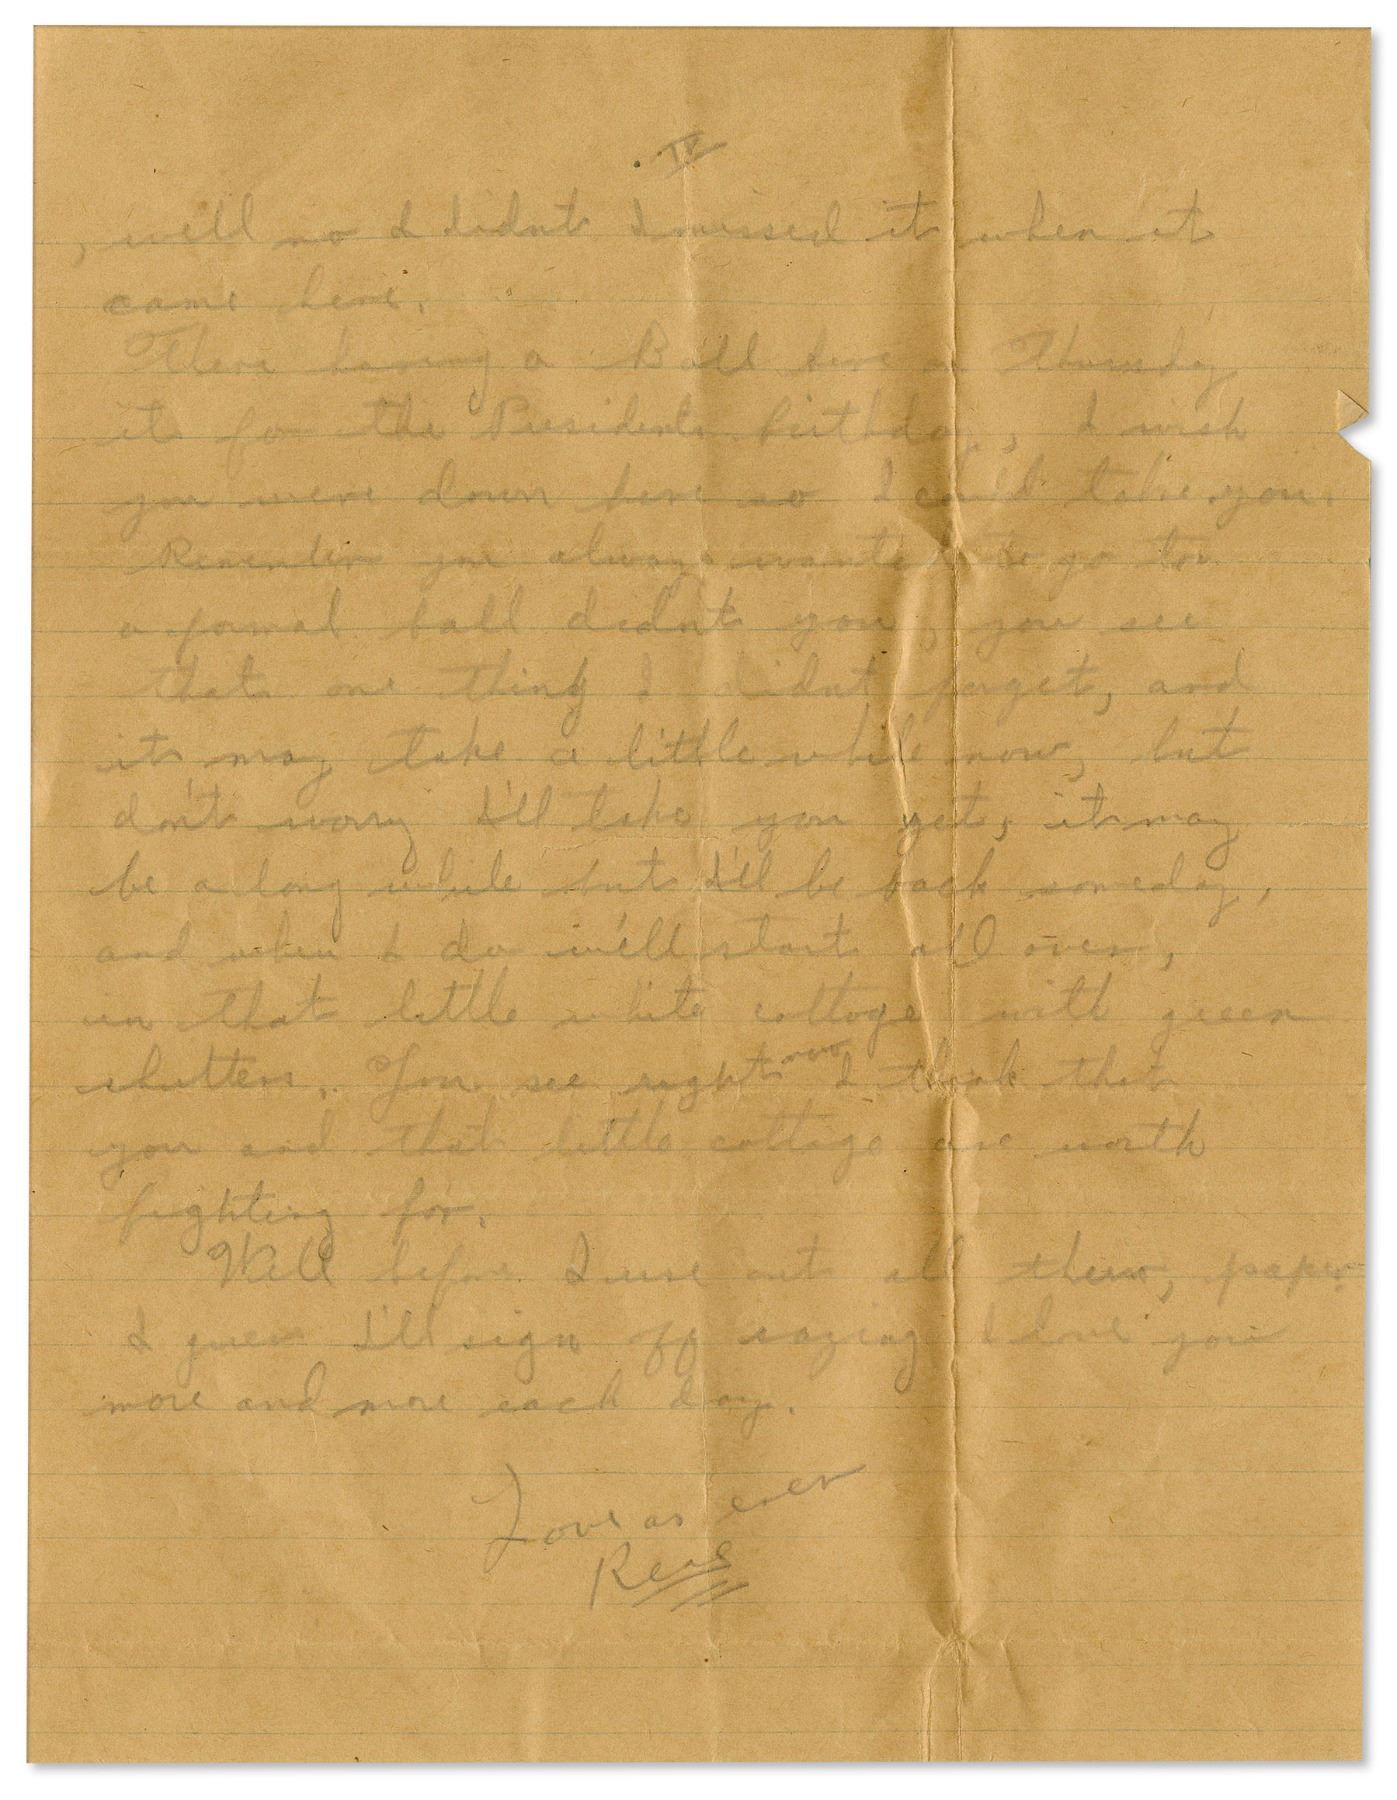 IV
, well no I didnt I missed it when it
came here.
There having a Ball here on Thursday
its for the Presidents birthday, I wish
you were down here so I could take you.
Remember you always wanted to go to
a formal ball didn't you, you see
thats one thing I didnt forget, and
it may take a little while now, but
don't worry I'll take you yet, it may
be a long while but I'll be back someday,
and when I do we'll start all over,
in that little white cottage with green
shutters. You see right now I think that
you and that little cottage are worth
fighting for.
Well before I use out all the paper
I guess I'll sign off saying I love you
more and more each day.
Love as ever